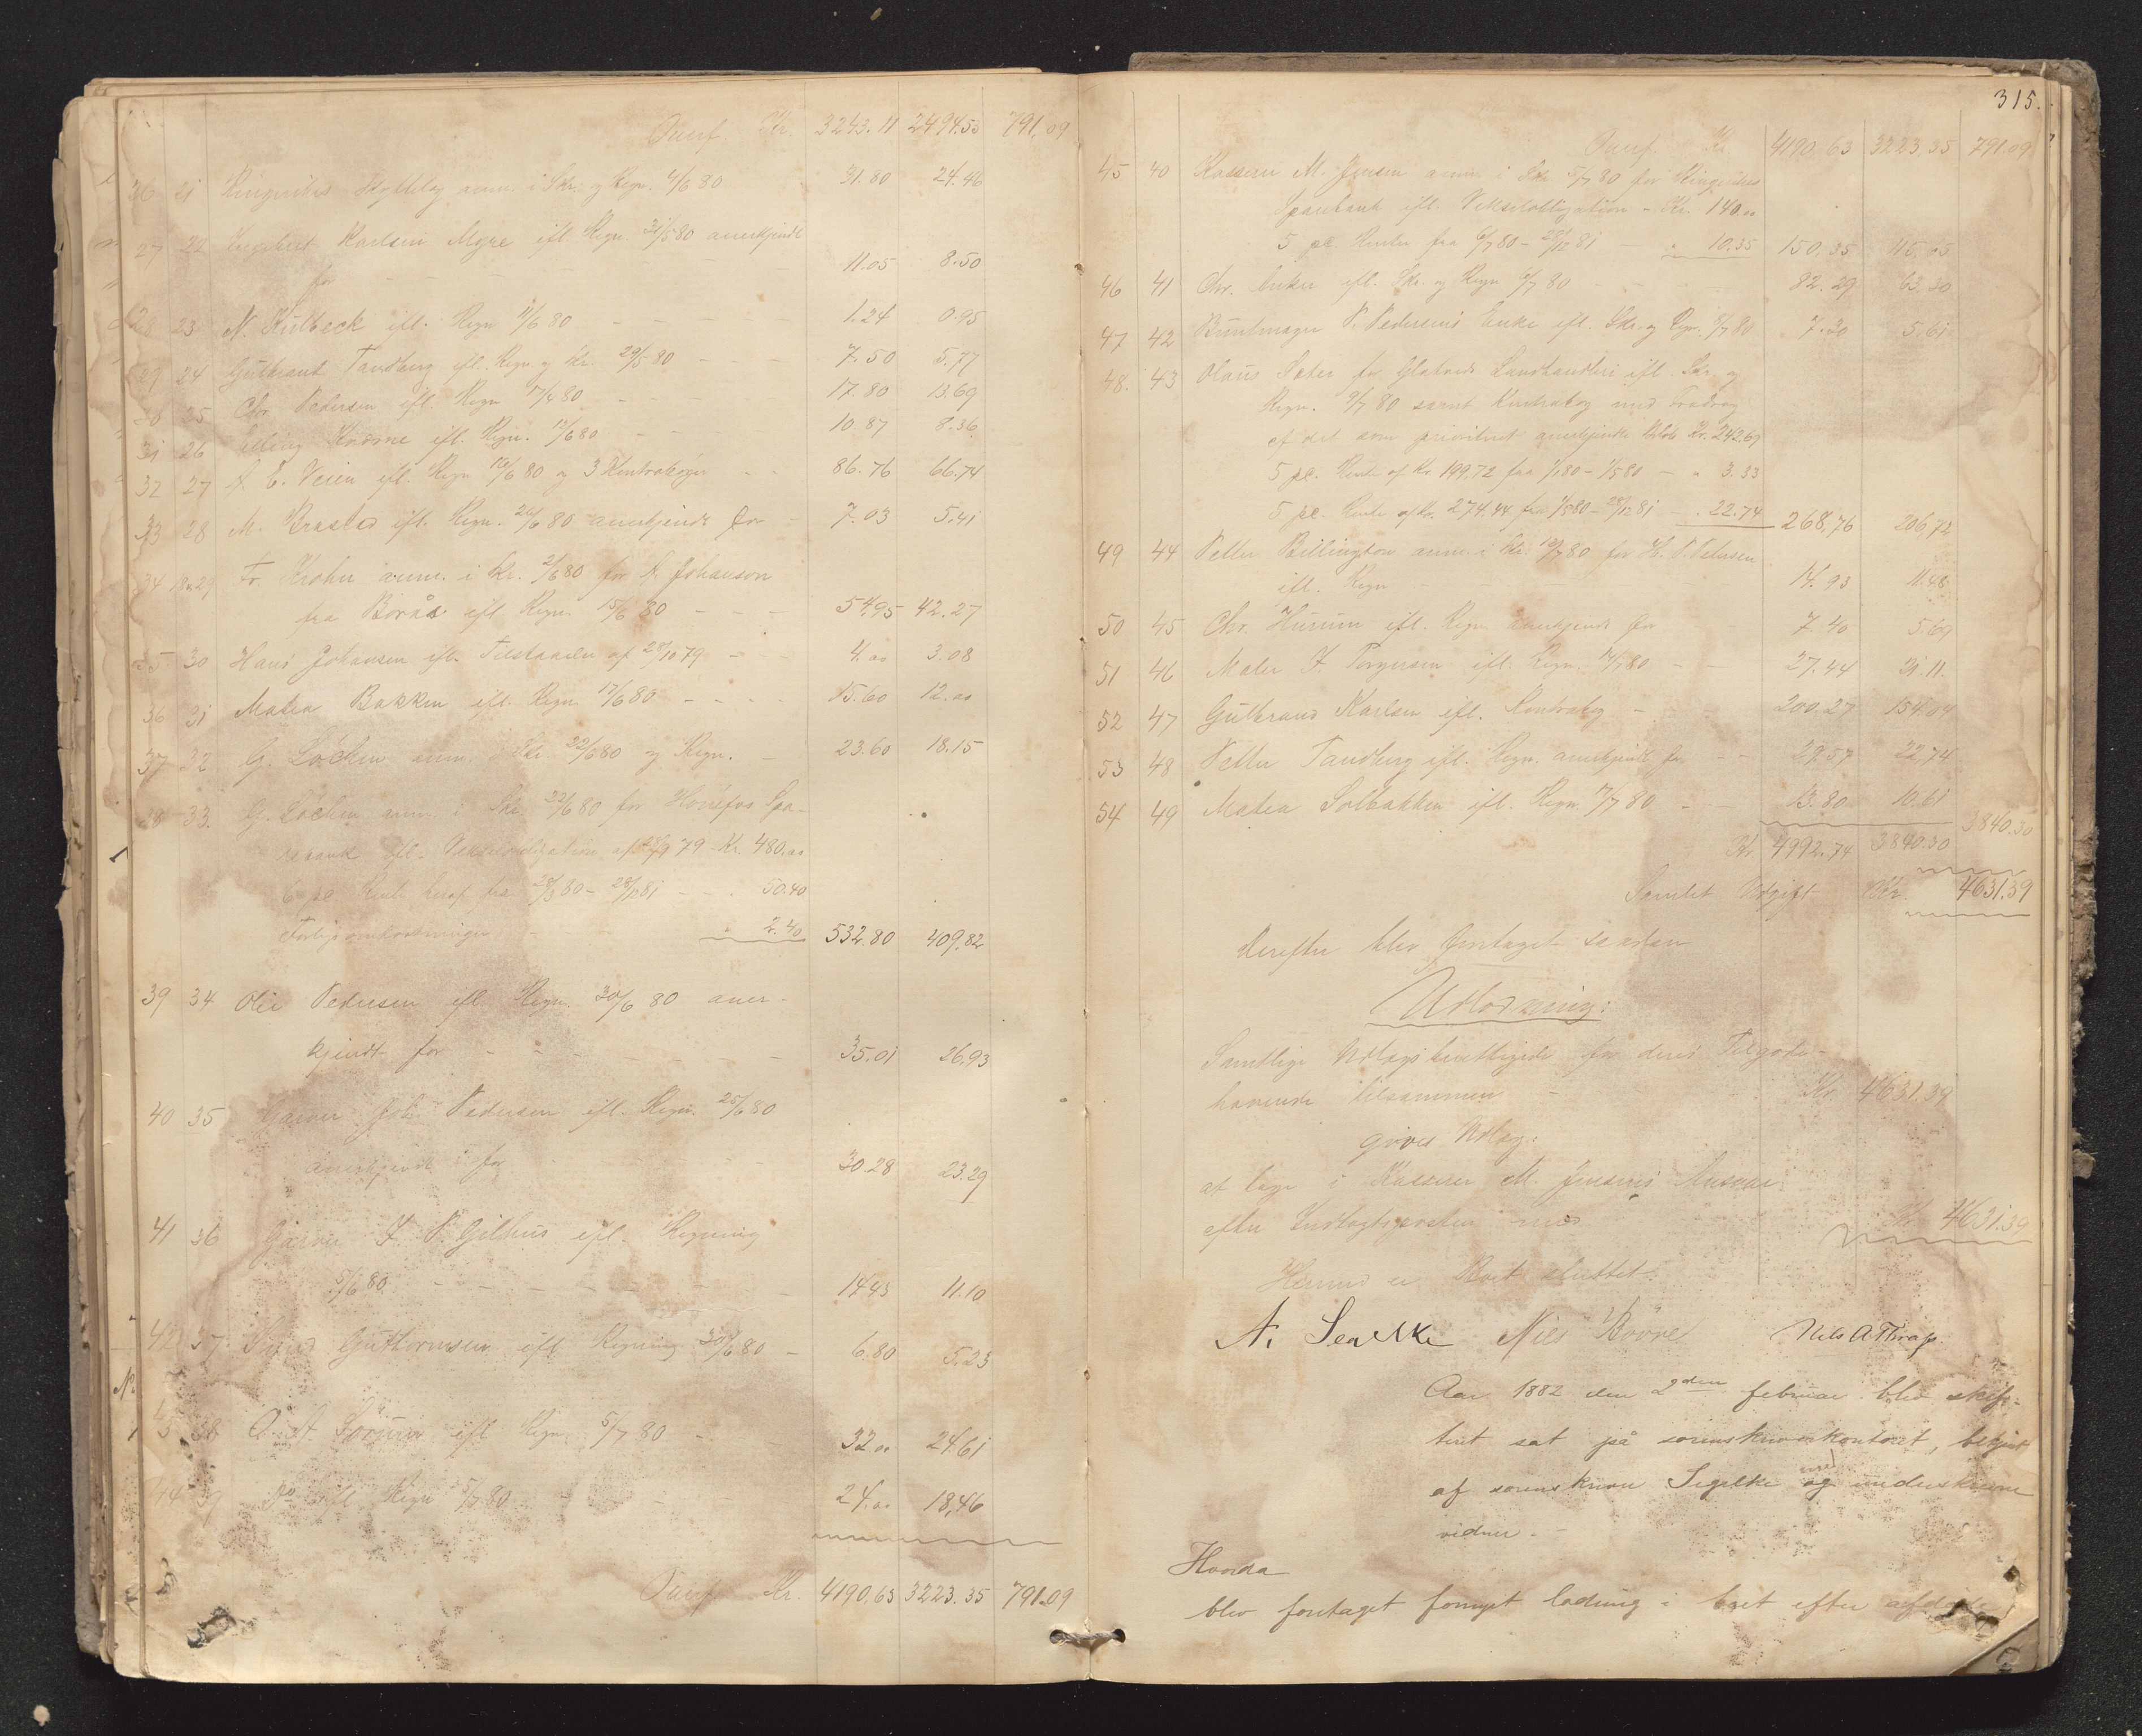 Kr. 3243.11 2494.53 791.09
26 21 Ringerikes anm. i Skr. og Regn. 4/6 80 31.80 24.46
27 22 Ingebret Karlsen Myre ifl. Regn. 31/5 80 anerkjendt
for 11.05 8.50
28 23 N. Kulbeck ifl. Regn 11/6 80 1.24 0.95
29 24 Gulbrand Tandberg ifl. Regn og Skr. 29/5 80 7.50 5.77
30 25 Chr. Pedersen ifl. Regn 17/4 80 17.80 13.69
31 26 Elling ifl. Regn. 12/6 80 10.87 8.36
32 27 A. E. Veien ifl. Regn 16/6 80 og 3 Kontrabøger 86.76 66.74
33 28 M. Brastad ifl. Regn. 26/6 80 anerkjendt for 7.03 5.41
34 29 Fr. Krohn anm. i Skr. 2/6 80 for A. Johanson
fra Borås ifl. Regn. 15/6 80 54.95 42.27
35 30 Hans Johansen ifl. af 28/10 79 4.00 3.08
36 31 Matea Bakken ifl. Regn 17/6 80 15.60 12.00
37 32 G. Løchen anm. i Skr. 22/6 80 og Regn. 23.60 18.15
38 33. G. Løchen anm. i Skr. 22/6 80 for Hønefos Spa-
rebank ifl. Vekselobligation af 79 Kr. 480.00
6 pc. Rente heraf fra 28/3 80 - 28/12 81 50.40
2.40 532.80 409.82
39 34 Ole Pedersen ifl. Regn. 30/6 80 aner-
kjendt for 35.01 26.93
40 35 Garver Joh. Pedersen ifl. Regn. 25/6 80
anerkjendt for 30.28 23.29
41 36 Garver F. P. Gilhus ifl. Regning
5/6 80 14.43 11.10
42 37 Guthormsen ifl. Regning 30/6 80 6.80 5.23
38 A. Sørum ifl. Regn. 5/7 80 32.00 24.61
44 39 Do ifl. Regn 5/7 80 24.00 18.46
Kr. 4190.63 3223.35 791.09
315.
Kr. 4190.63 3223.35 791.09
45 40 Kasserer M. Jensen anm. i Skr 5/7 80 for Ringerikes
Sparebank ifl. Vekselobligation - Kr. 140.00
5 pc. Renter fra 6/7 80 - 28/12 81 10.35 150.35 115.65
46 41 Chr. Anker ifl. Skr. og Regn 80 82.29 63.30
47 42 Buntmager P. Pedersens Enke ifl. Skr. og Regn. 8/7 80 7.30 5.61
48. 43 Olaus Sæter for Landhandleri ifl. Skr. og
Regn. 9/7 80 samt Kontrabog med Fradrag
af det som prioriteret anerkjendte Beløb Kr. 242.67
5 pc. Rente af Kr. 199.72 fra 1/1 80 - 1/5 80 3.33
5 pc. Rente af Kr. 274.44 fra 1/5 80 - 28/12 81 22.74 268.76 206.72
49 44 Petter Billington anm. i Skr. 10/7 80 for H. P. Petersen
ifl. Regn 14.93 11.48
50 45 Chr. Hurum ifl. Regn anerkjendt for 7.40 5.69
51 46 Maler F. Torgersen ifl. Regn. 80 27.44 21.11.
52 47 Gulbrand Karlsen ifl. Kontrabog 200.27 154.04
53 48 Petter Tandberg ifl. Regn. anerkjendt for 29.57 22.74
54 49 Matea Solbakken ifl. Regn. 17/7 80 13.80 10.61
Kr 4992.74 3840.30 3840.30
Samlet Udgift Kr. 4631.39
Derefter blev foretaget saadan
Udlodning:
Samtlige Udlagsberettigede for deres Tilgode-
havende tilsammen Kr. 4631.39
gives Udlag:
at tage i Kasserer M. Jensens Ansvar
efter Indtægtsposten med Kr 4631.39
Hermed er Boet sluttet.
Nies Bovre Nils A Thrap
Aar 1882 den 2den februar blev skif-
teret sat på sorenskriverkontoret, betjent
af sorenskriver Segelke med og underskrevne
vidner. -
Hvorda
blev foretaget fornyet lodning i boet efter afdøde